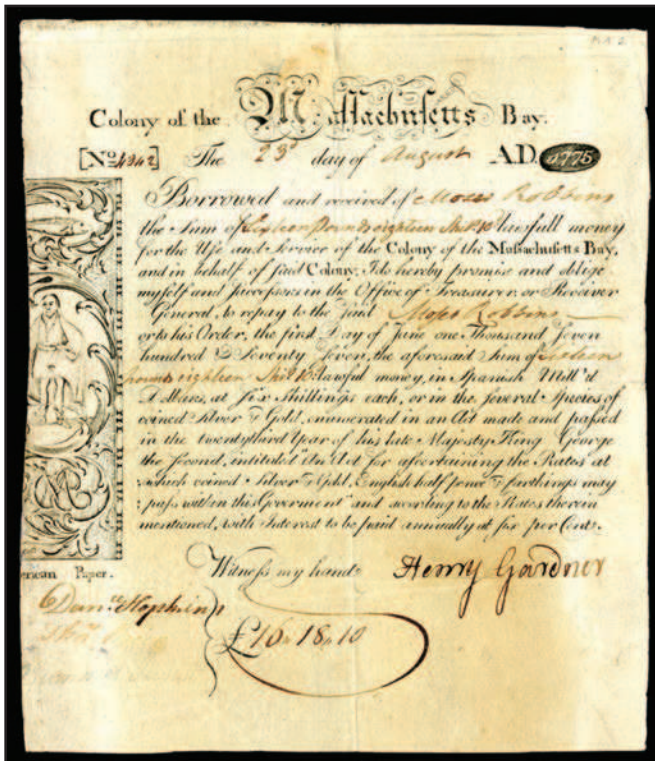 Colony of the Massachusetts Bay.
[No 4342] The 23d day of August A.D. 1775
Borrowed and received of Moses Robbins
the Sum of Sixteen Pounds eighteen Shills 10 lawfull money
for the Use and Service of the Colony of the Massachusetts Bay,
and in behalf of said Colony; I do hereby promise and oblige
myself and successors in the Office of Treasurer or Receiver
General, to repay to the said Moses Robbins
or to his Order, the first Day of June one Thousand Seven
hundred & Seventy Seven, the aforesaid Sum of Sixteen
pounds eighteen Shills 10 lawful money, in Spanish Mill'd
Dollars, at six Shillings each, or in the several Species of
coined Silver & Gold, enumerated in an Act made and passed
in the twenty third Year of his late Majesty King George
the Second, intitled "An Act for ascertaining the Rates at
which coined Silver & Gold, English half pence & farthings may
pass within this Goverment" and according to the Rates therein
mentioned, with Interest to be paid annually at six per Cent.
erican Paper. Witness my hand Henry Gardner
Danll Hopkins
£16.18.10